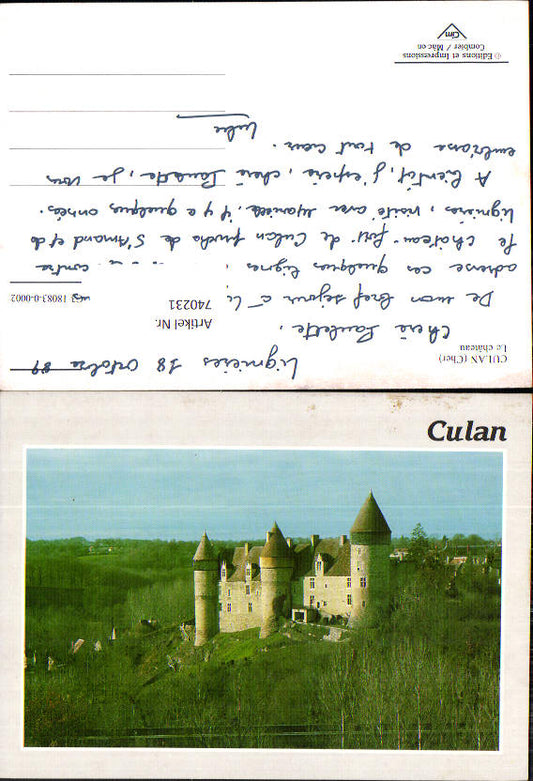 Lignières 18 octobre 89
CULAN (Cher)
Le château
Chère Paulette,
Artikel Nr.
740231
De mon bref séjour
18083-0-0002
adresse ces quelques lignes.
Le château-fort de Culan proche de St Amand et de
Lignières, visité avec il y a quelques années.
A bientôt, j'espère, chère Paulette, je vous
embrasse de tout cœur.
© Editions et Impressions
Combier / Mâcon
Cim
Culan